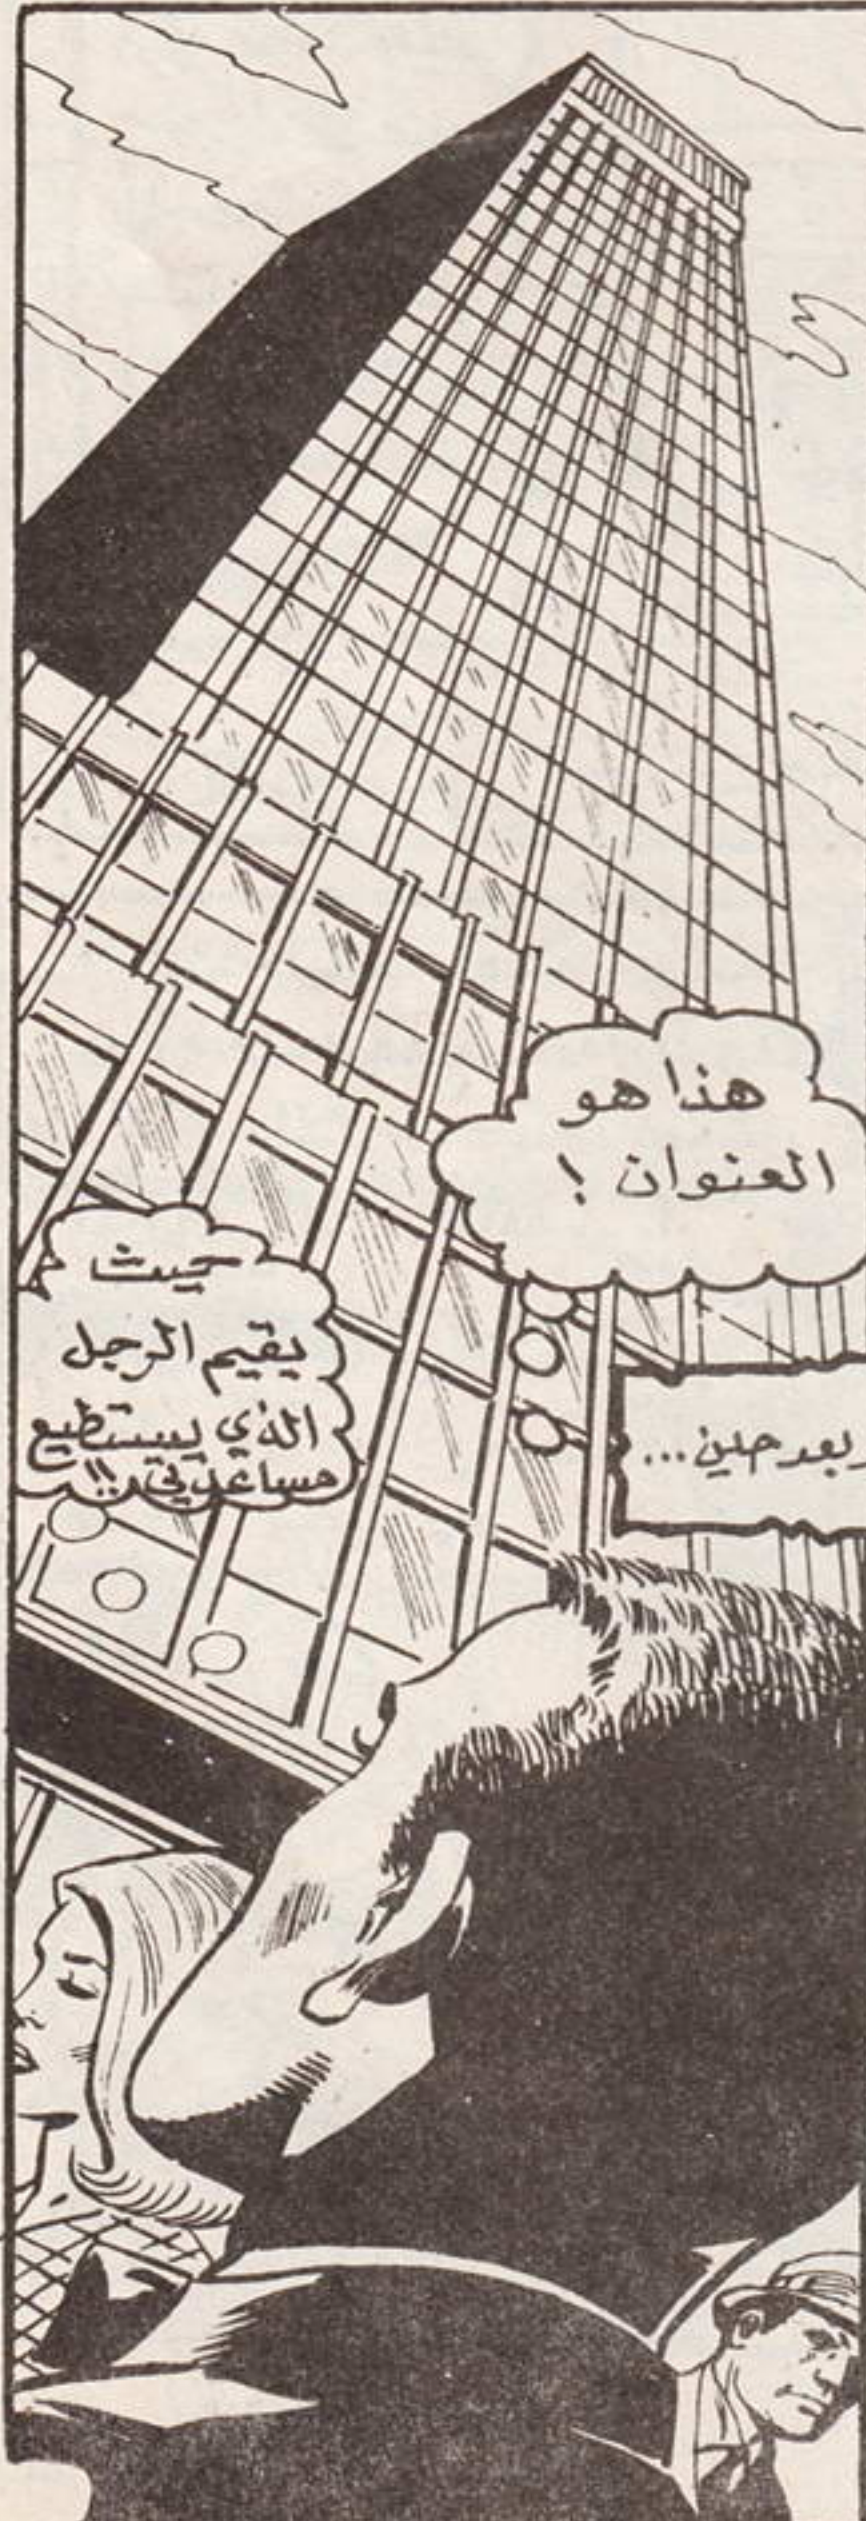 وبعد حين...
هذا هو
العنوان !
حيث
يقيم الرجل
الذي يستطيع
مساعدتي !!